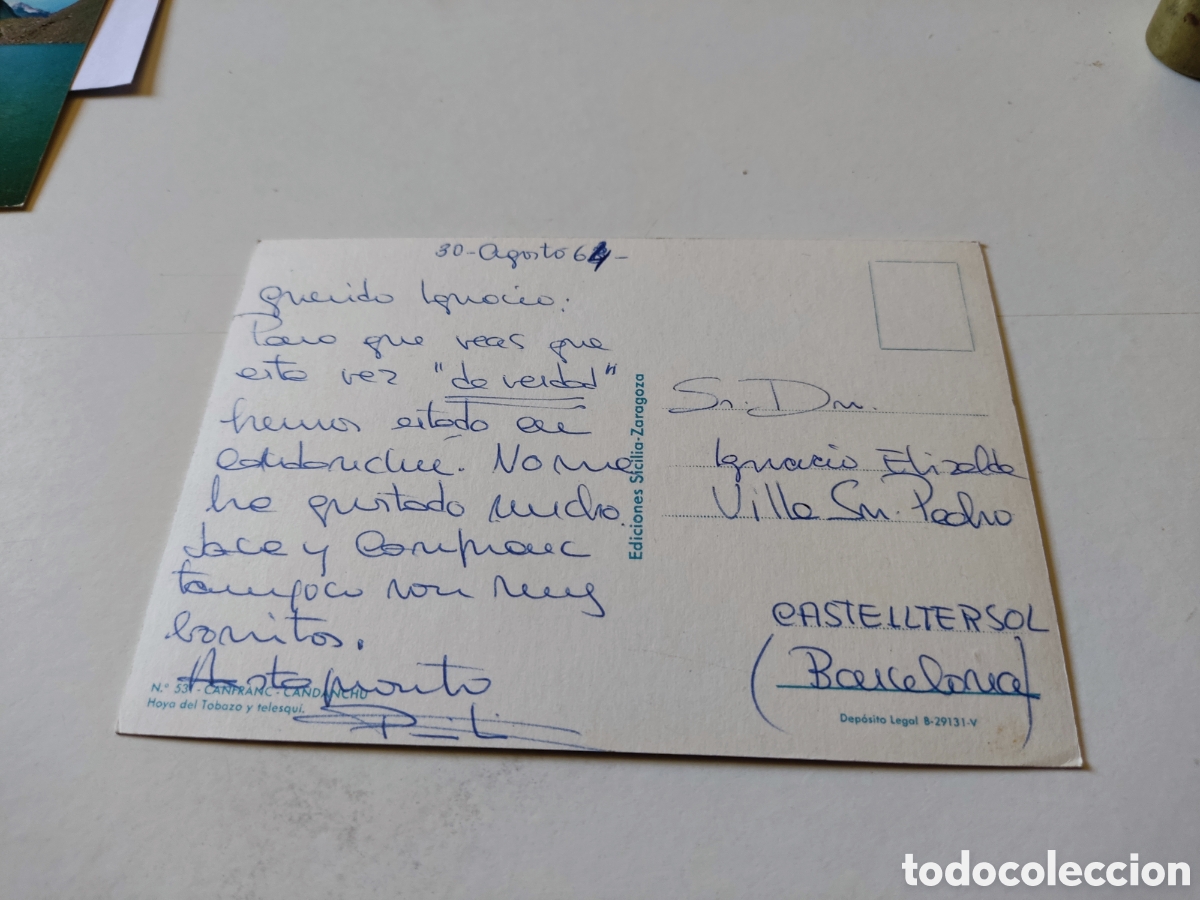 30-Agosto 64-
Querido Ignacio:
Para que veas que
esta vez "de verdad"
hemos estado en
Candanchú. No me
ha gustado mucho.
Jaca y Canfranc
tampoco son muy
bonitos.
Hasta pronto
Nº 53 - CANFRANC - CANDANCHU
Hoya del Tobazo y telesqui.
Ediciones Sicilia-Zaragoza
Sr. Dn.
Ignacio Elizalde
Villa Sn. Pedro
CASTELLTERSOL
(Barcelona)
Depósito Legal B-29131-V
todocoleccion